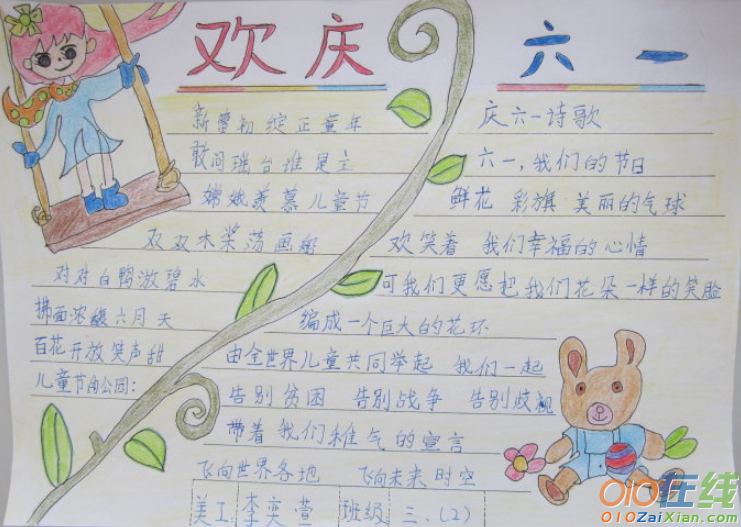 欢庆 六一
新蕾初绽正童年
敢问瑶台谁是主
嫦娥羡慕儿童节
双双木桨荡画船
对对白鸭游碧水
拂面浓馥六月天
百花开放笑声甜
儿童节的公园:
庆六一诗歌
六一,我们的节日
鲜花 彩旗 美丽的气球
欢笑着 我们幸福的心情
可我们更愿把我们花朵一样的笑脸
编成一个巨大的花环
由全世界儿童共同举起 我们一起
告别贫困 告别战争 告别歧视
带着我们稚气的宣言
飞向世界各地 飞向未来时空
美工 李奕萱 班级 三、(2)
010在线
010ZaiXian.com